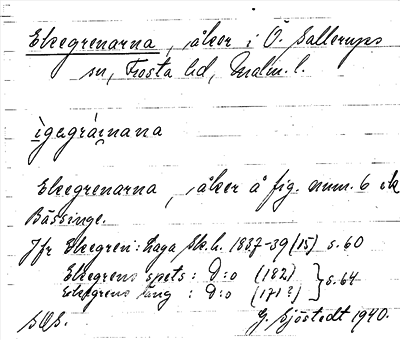 Ekegrenarna, åker i Ö. Sallerups
sn, Frosta hd, Malm. l.
ìgagráinana
Ekegrenarna, åker å fig. num. 6 
Bässinge.
Jfr Ekegren: Laga Sk. h. 1837-39 (15) s. 60
Ekegrens spets: D:o (182) } s. 64
Ekegrens äng: D:o (171?)
G. Sjöstedt 1940.